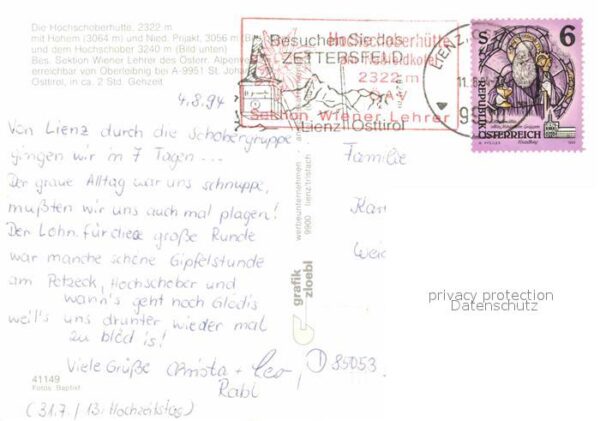 Die Hochschoberhütte, 2322 m
mit Hohem (3064 m) und Nied. Prijakt, 3056 m
und dem Hochschober 3240 m (Bild unten)
Bes. Sektion Wiener Lehrer des Österr. Alpenver
erreichbar von Oberleibnig bei A-9951 St. Joha
Osttirol, in ca. 2 Std. Gehzeit
Besuchen Sie das
ZETTERSFELD
Lienz Osttirol
Hochschoberhütte
2322 m
Sektion Wiener Lehrer
LIENZ
S 6
REPUBLIK
ÖSTERREICH
4.8.94
Von Lienz durch die Schobergruppe
gingen wir in 7 Tagen ...
Der graue Alltag war uns schnuppe,
mußten wir uns auch mal plagen!
Der Lohn für diese große Runde
war manche schöne Gipfelstunde
am Petzeck, Hochschober und
wann's geht noch Glödis
weil's uns drunter wieder mal
zu blöd is!
Viele Grüße Christa + Leo
Rabl
(31.7./13. Hochzeitstag)
Familie
Kar
Weid
D 85053
werbeunternehmen
9900 lienz/tristach
grafik
zloebl
privacy protection
Datenschutz
41149
Fotos: Baptist